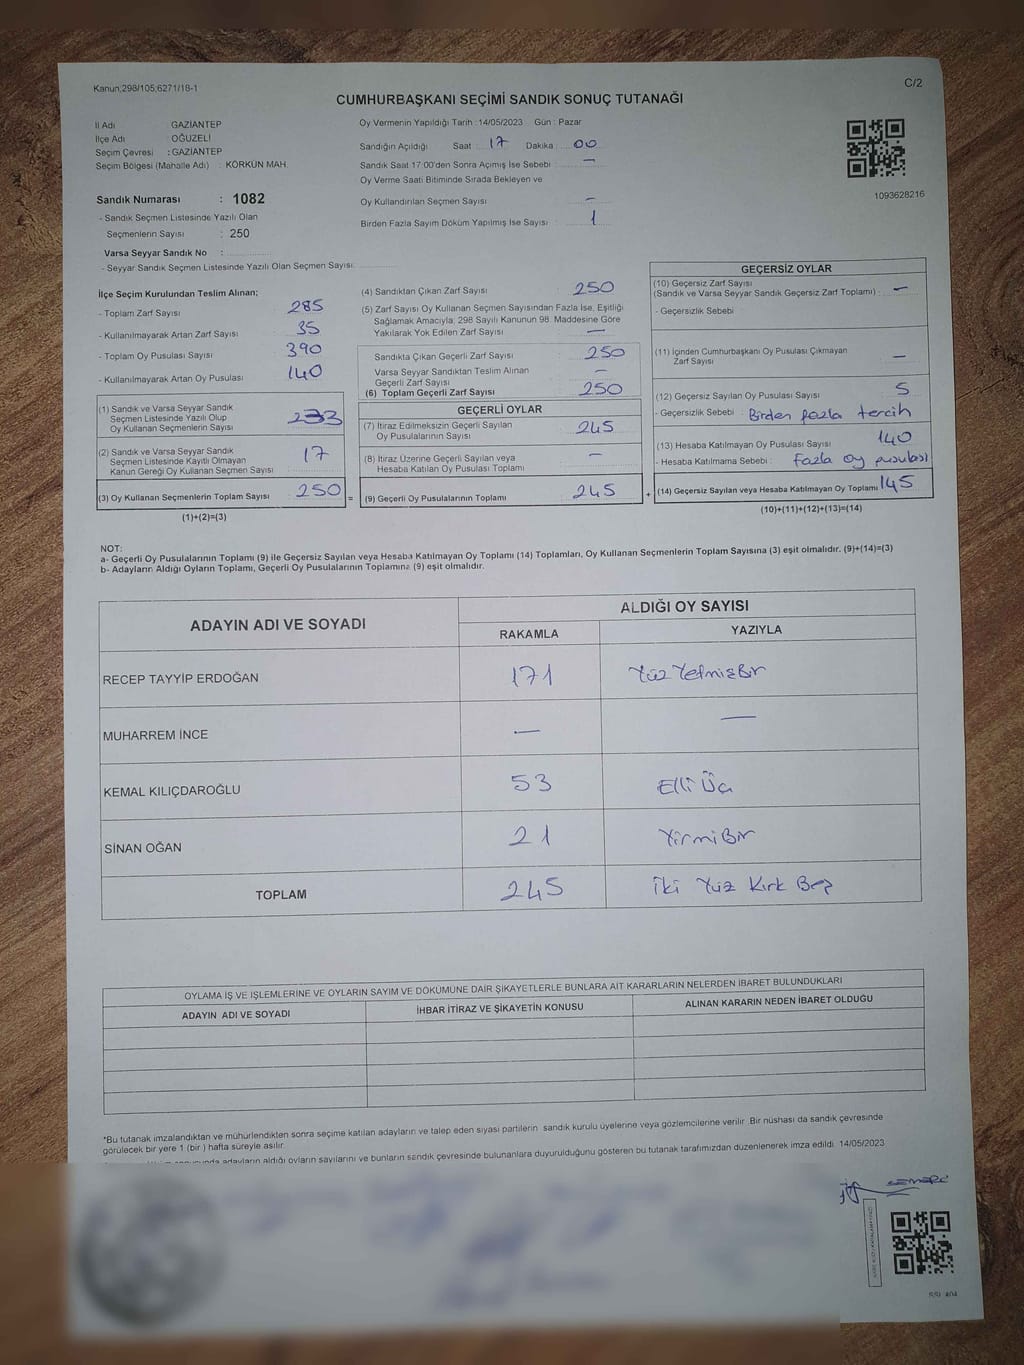 Kanun;298/105;6271/18-1
C/2
CUMHURBAŞKANI SEÇİMİ SANDIK SONUÇ TUTANAĞI
İl Adı GAZİANTEP
İlçe Adı : OĞUZELİ
Seçim Çevresi : GAZİANTEP
Seçim Bölgesi (Mahalle Adı) : KÖRKÜN MAH.
Sandık Numarası : 1082
- Sandık Seçmen Listesinde Yazılı Olan
Seçmenlerin Sayısı : 250
Varsa Seyyar Sandık No :
- Seyyar Sandık Seçmen Listesinde Yazılı Olan Seçmen Sayısı:
Oy Vermenin Yapıldığı Tarih : 14/05/2023 Gün : Pazar
Sandığın Açıldığı Saat : 17 Dakika : 00
Sandık Saat 17:00'den Sonra Açımış İse Sebebi : —
Oy Verme Saati Bitiminde Sırada Bekleyen ve
Oy Kullandırılan Seçmen Sayısı : —
Birden Fazla Sayım Döküm Yapılmış İse Sayısı : 1
1093628216
İlçe Seçim Kurulundan Teslim Alınan;
- Toplam Zarf Sayısı : 285
- Kullanılmayarak Artan Zarf Sayısı : 35
- Toplam Oy Pusulası Sayısı : 390
- Kullanılmayarak Artan Oy Pusulası : 140
(1) Sandık ve Varsa Seyyar Sandık
Seçmen Listesinde Yazılı Olup
Oy Kullanan Seçmenlerin Sayısı : 233
(2) Sandık ve Varsa Seyyar Sandık
Seçmen Listesinde Kayıtlı Olmayan
Kanun Gereği Oy Kullanan Seçmen Sayısı : 17
(3) Oy Kullanan Seçmenlerin Toplam Sayısı : 250 =
(1)+(2)=(3)
(4) Sandıktan Çıkan Zarf Sayısı : 250
(5) Zarf Sayısı Oy Kullanan Seçmen Sayısından Fazla İse, Eşitliği
Sağlamak Amacıyla, 298 Sayılı Kanunun 98. Maddesine Göre
Yakılarak Yok Edilen Zarf Sayısı : —
Sandıkta Çıkan Geçerli Zarf Sayısı : 250
Varsa Seyyar Sandıktan Teslim Alınan
Geçerli Zarf Sayısı : —
(6) Toplam Geçerli Zarf Sayısı : 250
GEÇERLİ OYLAR
(7) İtiraz Edilmeksizin Geçerli Sayılan
Oy Pusulalarının Sayısı : 245
(8) İtiraz Üzerine Geçerli Sayılan veya
Hesaba Katılan Oy Pusulası Toplamı : —
(9) Geçerli Oy Pusulalarının Toplamı : 245 +
GEÇERSİZ OYLAR
(10) Geçersiz Zarf Sayısı
(Sandık ve Varsa Seyyar Sandık Geçersiz Zarf Toplamı) : —
- Geçersizlik Sebebi :
(11) İçinden Cumhurbaşkanı Oy Pusulası Çıkmayan
Zarf Sayısı : —
(12) Geçersiz Sayılan Oy Pusulası Sayısı : 5
- Geçersizlik Sebebi : Birden fazla tercih
(13) Hesaba Katılmayan Oy Pusulası Sayısı : 140
- Hesaba Katılmama Sebebi : fazla oy pusulası
(14) Geçersiz Sayılan veya Hesaba Katılmayan Oy Toplamı : 145
(10)+(11)+(12)+(13)=(14)
NOT:
a- Geçerli Oy Pusulalarının Toplamı (9) ile Geçersiz Sayılan veya Hesaba Katılmayan Oy Toplamı (14) Toplamları, Oy Kullanan Seçmenlerin Toplam Sayısına (3) eşit olmalıdır. (9)+(14)=(3)
b- Adayların Aldığı Oyların Toplamı, Geçerli Oy Pusulalarının Toplamına (9) eşit olmalıdır.
ADAYIN ADI VE SOYADI ALDIĞI OY SAYISI
RAKAMLA YAZIYLA
RECEP TAYYİP ERDOĞAN 171 Yüz YetmişBir
MUHARREM İNCE — —
KEMAL KILIÇDAROĞLU 53 Elli Üç
SİNAN OĞAN 21 YirmiBir
TOPLAM 245 İki Yüz Kırk Beş
OYLAMA İŞ VE İŞLEMLERİNE VE OYLARIN SAYIM VE DÖKÜMÜNE DAİR ŞİKAYETLERLE BUNLARA AİT KARARLARIN NELERDEN İBARET BULUNDUKLARI
ADAYIN ADI VE SOYADI İHBAR İTİRAZ VE ŞİKAYETİN KONUSU ALINAN KARARIN NEDEN İBARET OLDUĞU
*Bu tutanak imzalandıktan ve mühürlendikten sonra seçime katılan adayların ve talep eden siyasi partilerin sandık kurulu üyelerine veya gözlemcilerine verilir. Bir nüshası da sandık çevresinde
görülecek bir yere 1 (bir ) hafta süreyle asılır.
adayların aldığı oyların sayılarını ve bunların sandık çevresinde bulunanlara duyurulduğunu gösteren bu tutanak tarafımızdan düzenlenerek imza edildi. 14/05/2023